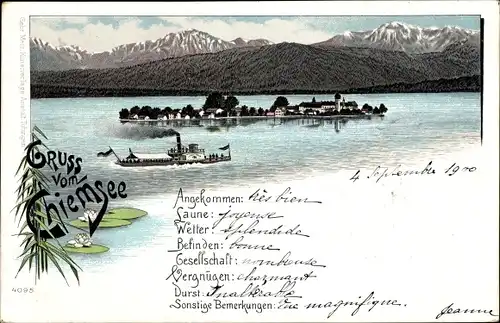 Gruss
vom
Chiemsee
4 September 1900
Angekommen: très bien
Laune: joyeuse
Wetter: splendide
Befinden: bonne
Gesellschaft: nombeuse
Vergnügen: charmant
Durst: Inalterable
Sonstige Bemerkungen: Vue magnifique.
Jeanne
4095